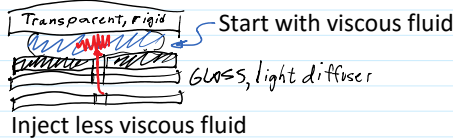 Transparent, rigid
Start with viscous fluid
GLASS, light diffuser
Inject less viscous fluid